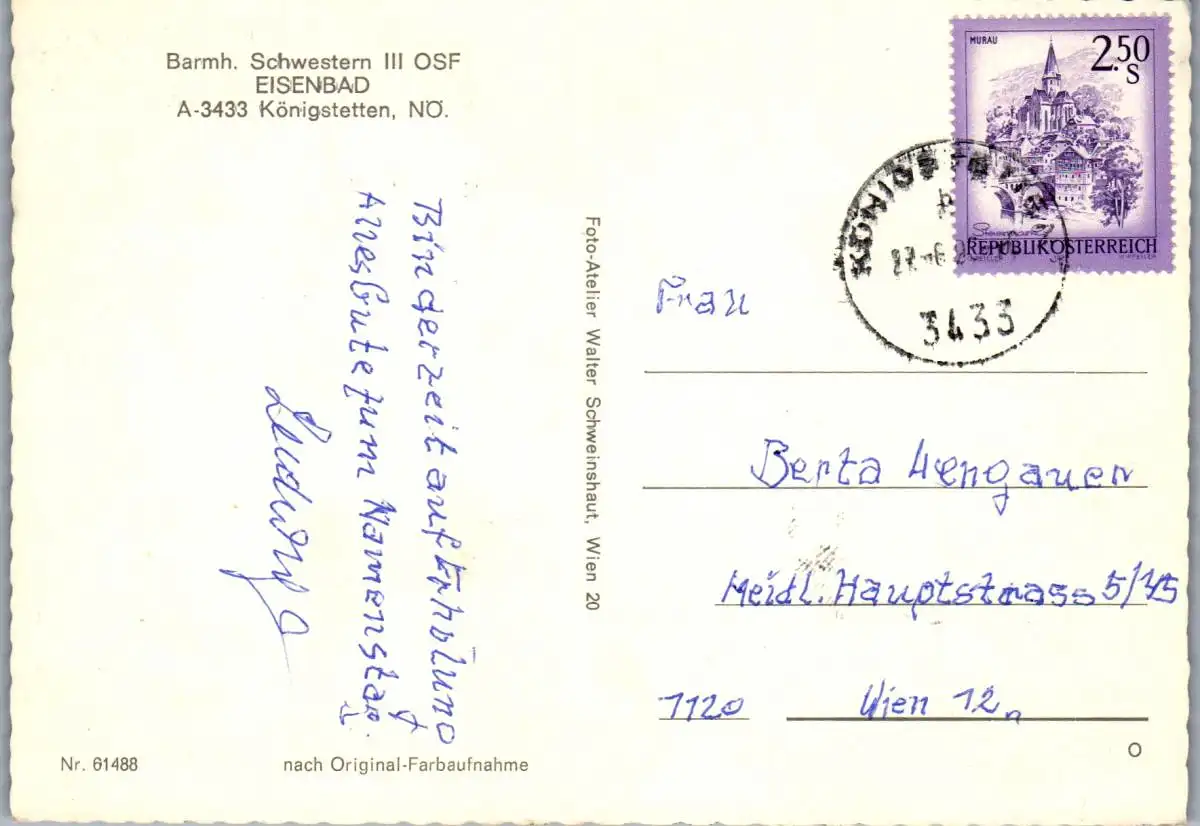 Barmh. Schwestern III OSF
EISENBAD
A-3433 Königstetten, NÖ.
Bin derzeit auf Erholung
Alles Gute zum Namenstag.
Ludwig
Foto-Atelier Walter Schweinshaut, Wien 20
Nr. 61488
nach Original-Farbaufnahme
MURAU
2.50
S
Steiermark
REPUBLIK ÖSTERREICH
KÖNIGSTETTEN
3433
Frau
Berta Wengauer
Meidl. Hauptstrass 5/15
1120 Wien 12
O